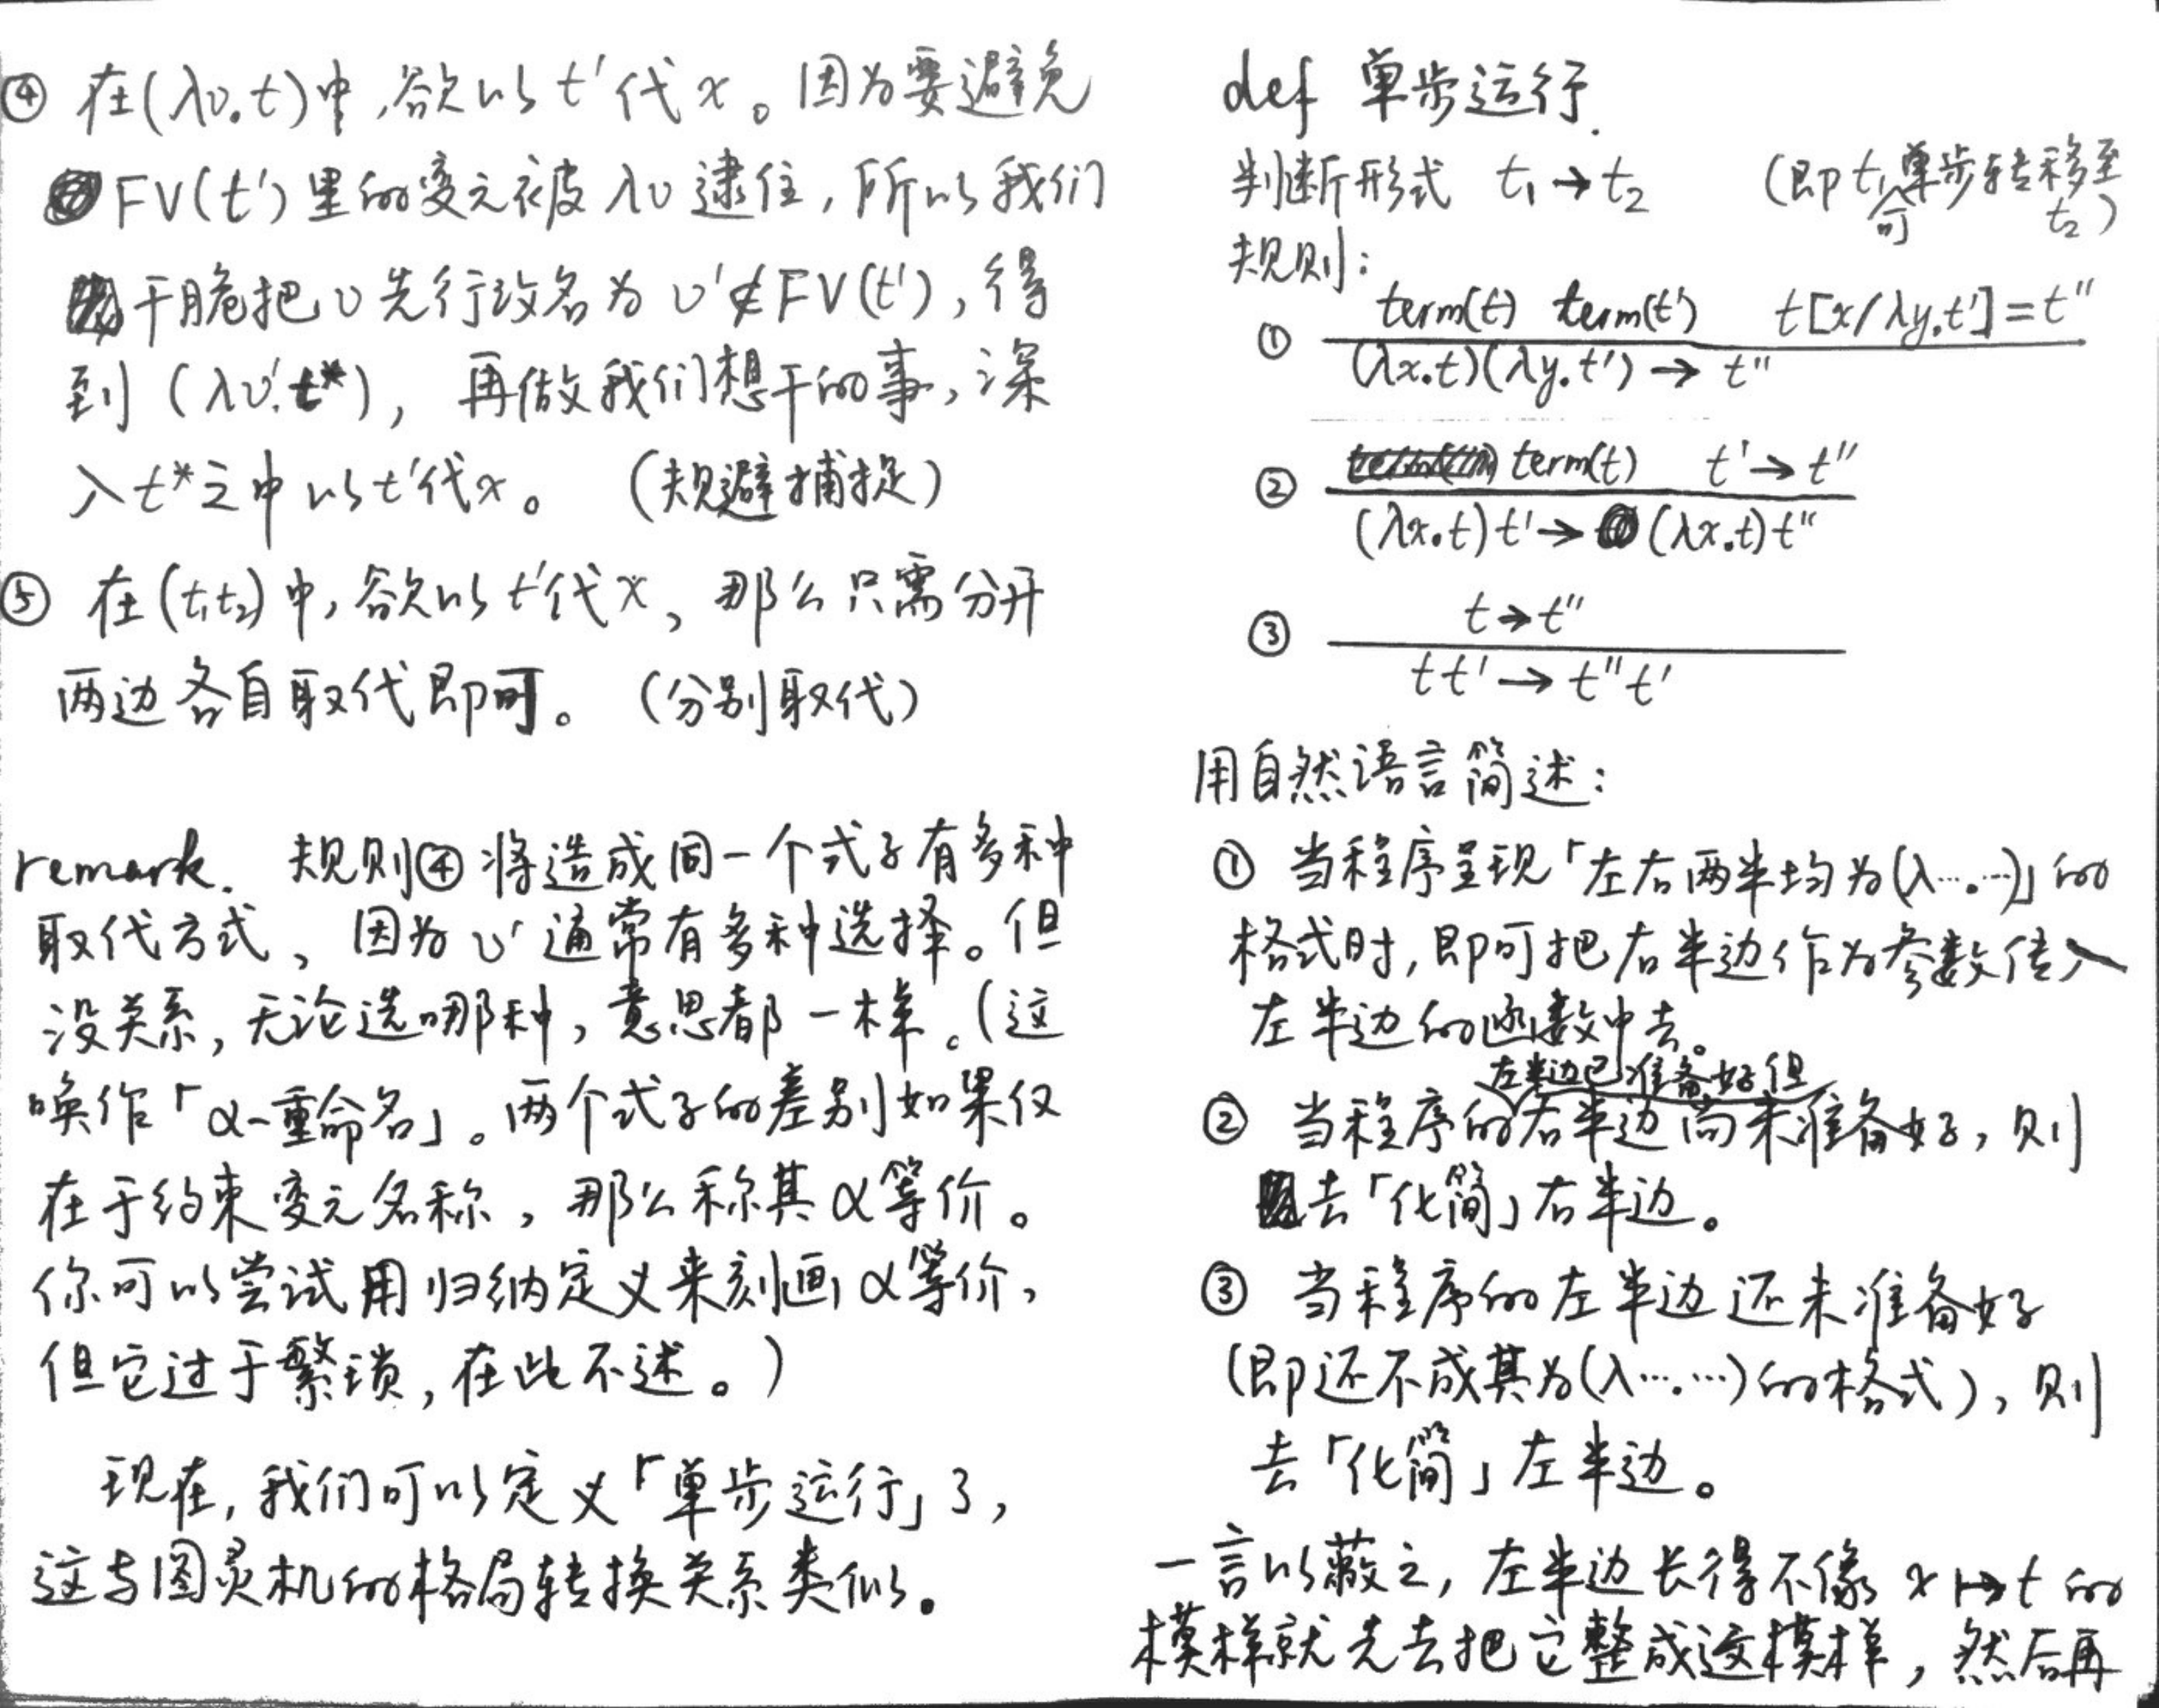 ④ 在(λv.t)中,欲以t'代x。因为要避免
FV(t')里的变元被λv逮住,所以我们
干脆把v先行改名为v'∉FV(t'),得
到(λv'.t*),再做我们想干的事,深
入t*之中以t'代x。(规避捕捉)
⑤ 在(t₁t₂)中,欲以t'代x,那么只需分开
两边各自取代即可。(分别取代)
remark. 规则④将造成同一个式子有多种
取代方式,因为v'通常有多种选择。但
没关系,无论选哪种,意思都一样。(这
唤作「α-重命名」。两个式子的差别如果仅
在于约束变元名称,那么称其α等价。
你可以尝试用归纳定义来刻画α等价,
但它过于繁琐,在此不述。)
现在,我们可以定义「单步运行」了,
这与图灵机的格局转换关系类似。
def 单步运行.
判断形式 t₁→t₂ (即t₁可单步转移至
t₂)
规则:
① term(t) term(t') t[x/λy.t']=t''
(λx.t)(λy.t')→t''
② term(t) t'→t''
(λx.t)t'→(λx.t)t''
③ t→t''
tt'→t''t'
用自然语言简述:
① 当程序呈现「左右两半均为(λ….…)」的
格式时,即可把右半边作为参数传入
左半边的函数中去。
② 当程序的左半边已准备好但右半边尚未准备好,则
去「化简」右半边。
③ 当程序的左半边还未准备好
(即还不成其为(λ….…)的格式),则
去「化简」左半边。
一言以蔽之,左半边长得不像x↦t的
模样就先去把它整成这模样,然后再